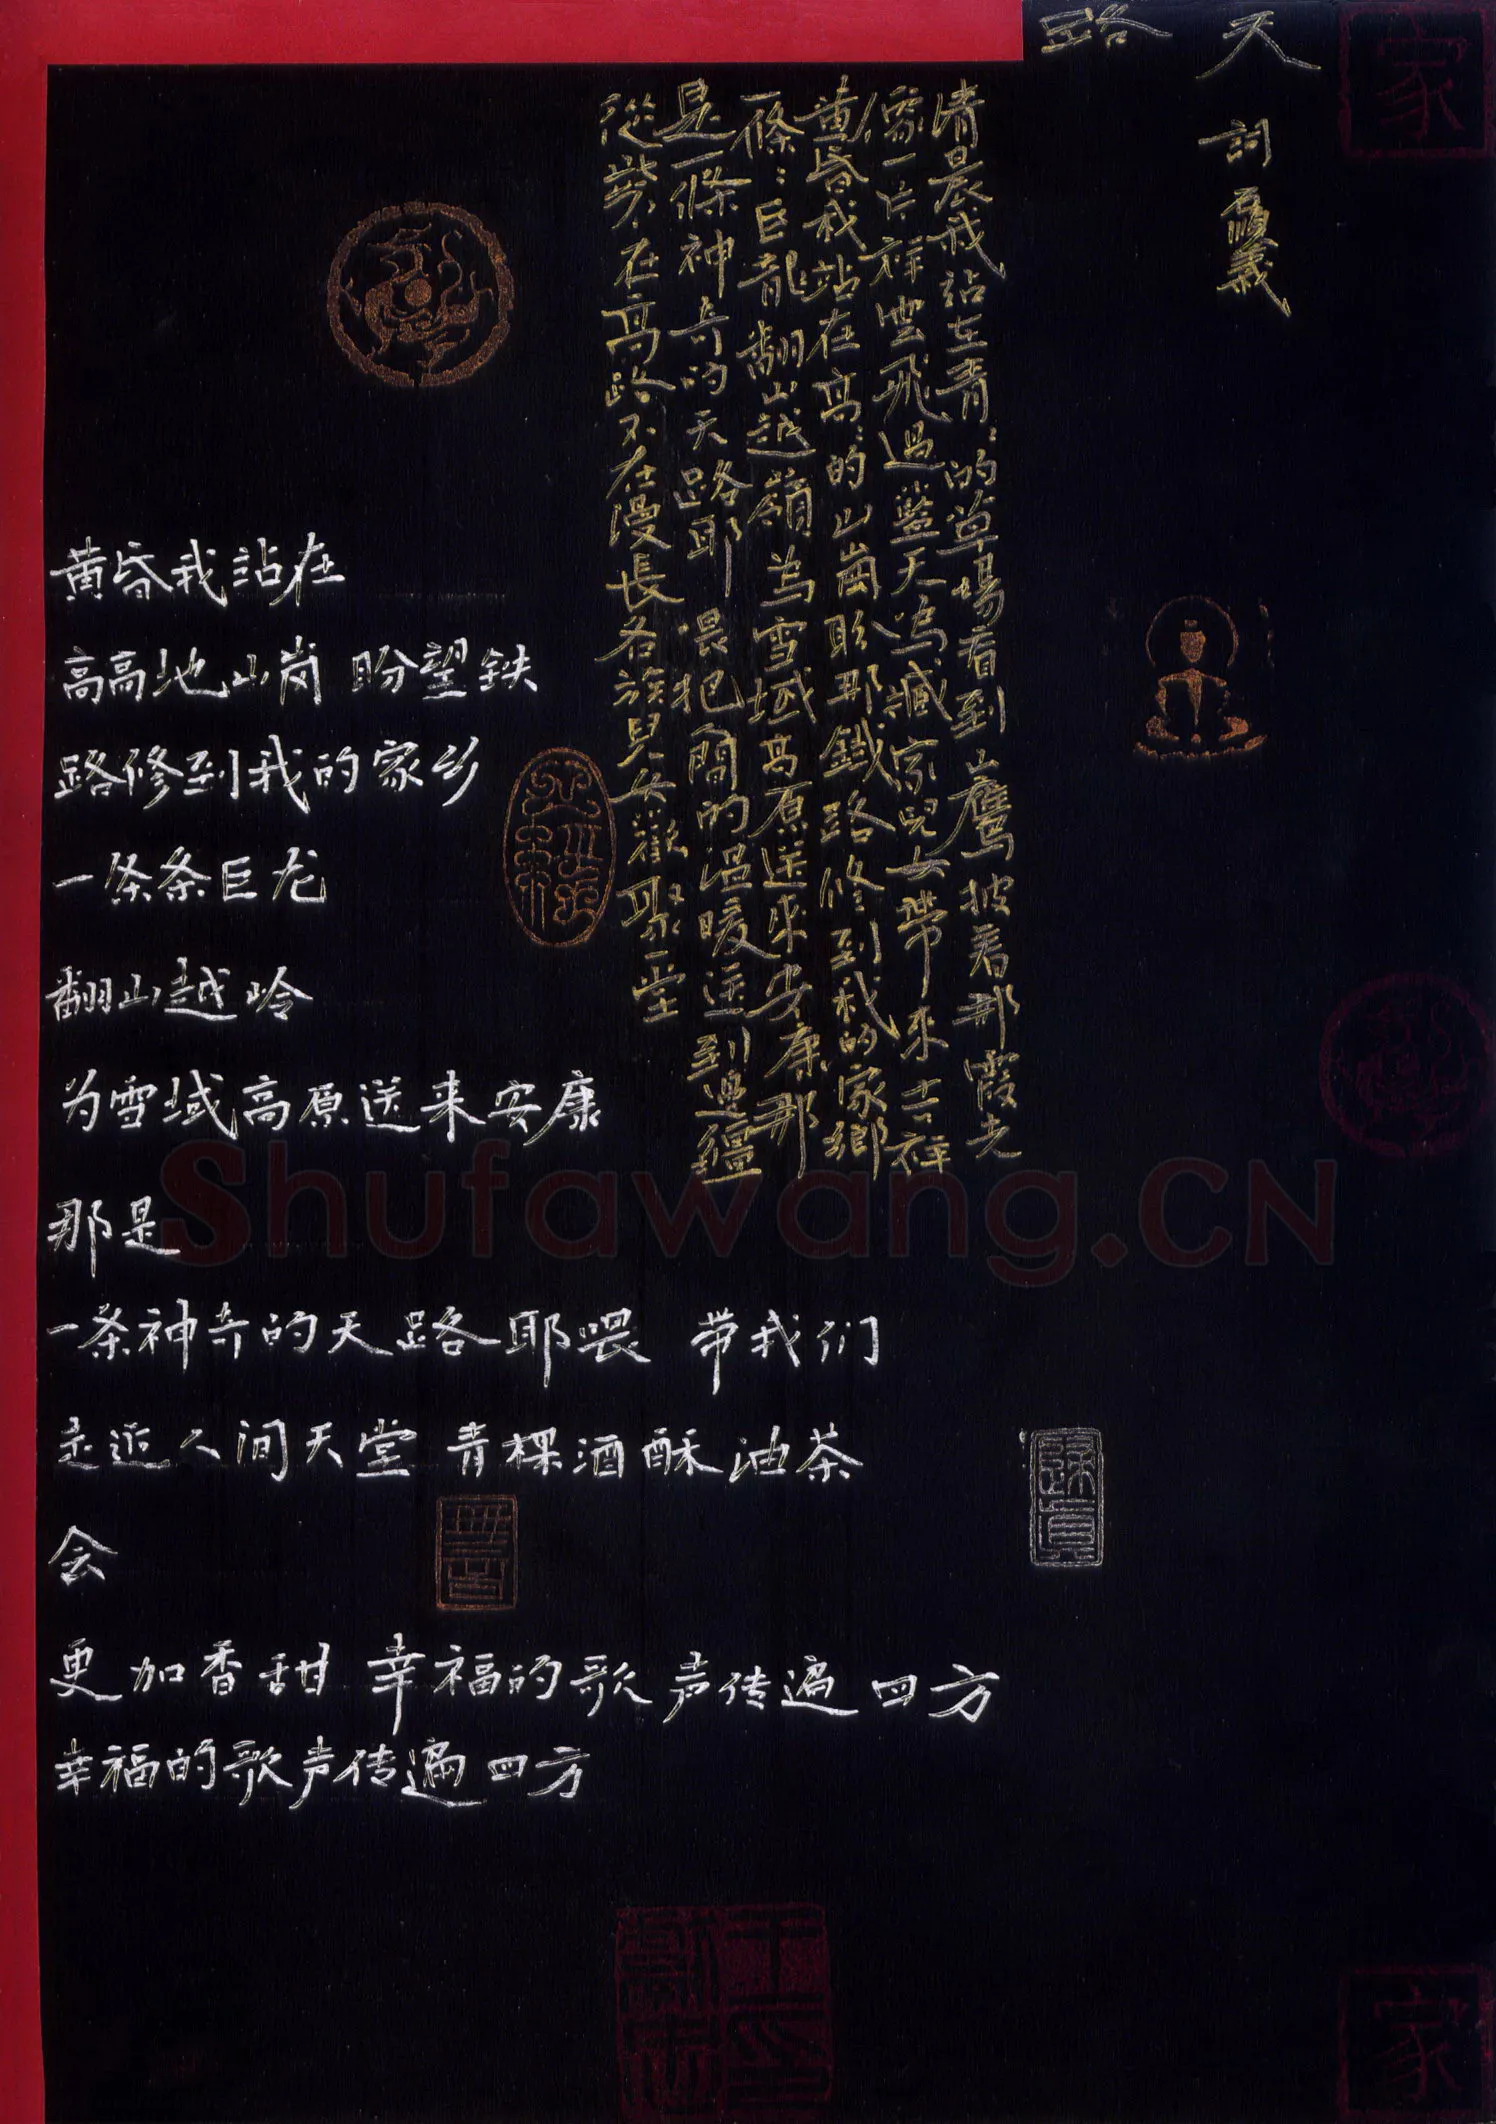 天路
詞 石順義
清晨我站在青:的草場看到山鷹披着那霞光
像一片祥雲飛過藍天為藏家兒女帶來吉祥
黄昏我站在高:的山崗盼那鐵路修到我的家鄉
一條:巨龍翻山越嶺為雪域高原送來安康那
是一條神奇的天路耶 喂把間的温暖送到邊疆
從此山不在高路不在漫長各族兒女歡聚一堂
黄昏我站在
高高地山岗 盼望铁
路修到我的家乡
一条条巨龙
翻山越岭
为雪域高原送来安康
那是
一条神奇的天路耶喂 带我们
走近人间天堂 青稞酒酥油茶
会
更加香甜 幸福的歌声传遍四方
幸福的歌声传遍四方
家
家
Shufawang.CN